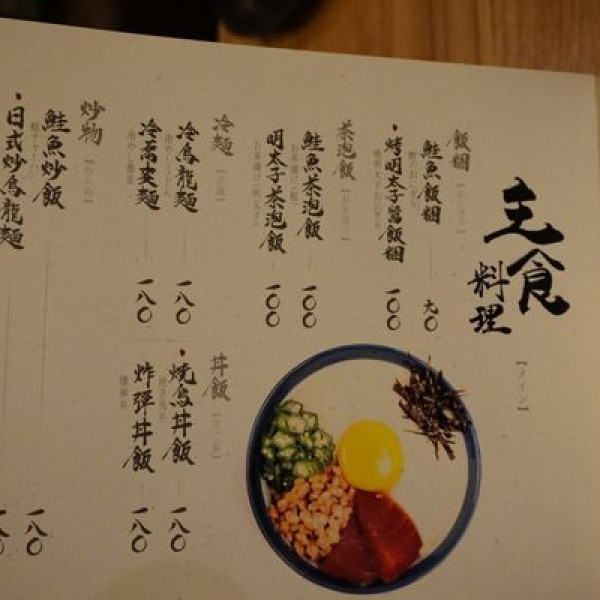 主食
料理
【メイン】
飯糰
鮭魚飯糰 九〇
・烤明太子醬飯糰 一〇〇
茶泡飯
鮭魚茶泡飯 一〇〇
明太子茶泡飯 一〇〇
冷麵
冷烏龍麵 一八〇
冷蕎麥麵 一八〇
丼飯
・燒鳥丼飯 一八〇
炸彈丼飯 一八〇
炒物
鮭魚炒飯 一八〇
・日式炒烏龍麵 一八〇